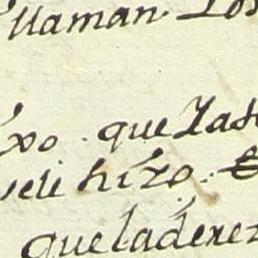 llaman Los
ixo. que Jas
seli hizo.
que laderez